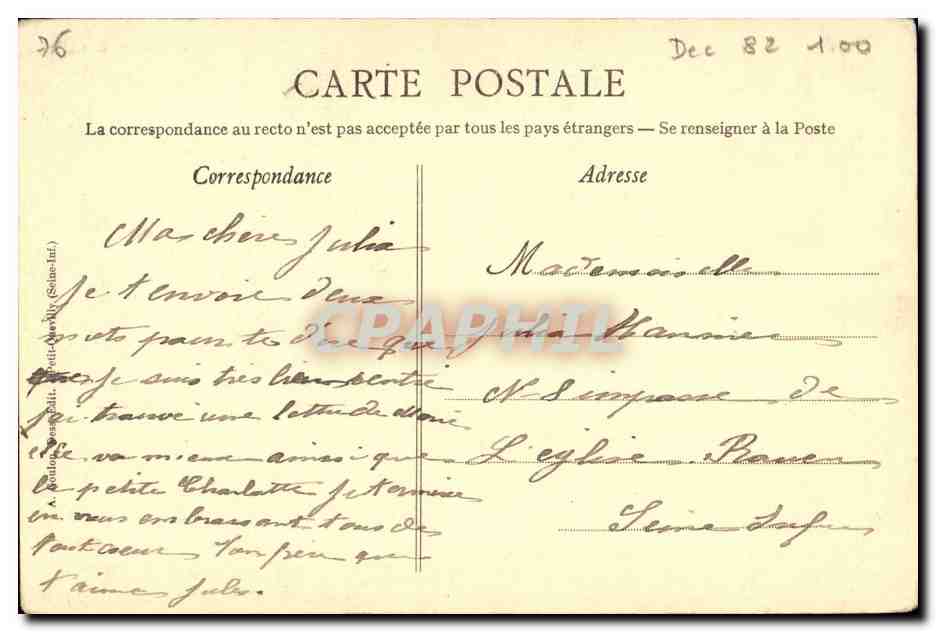 76
Dec 82 1.00
CARTE POSTALE
La correspondance au recto n'est pas acceptée par tous les pays étrangers — Se renseigner à la Poste
Correspondance
Ma chère Julia
Je t'envoie deux
mots pour te dire que
je suis très bien rentré
j'ai trouvé une lettre de Marie
elle va mieux ainsi que
la petite Charlotte je termine
en vous embrassant tous de
tout coeur ton frère que
t'aime Jules.
Adresse
Mademoiselle
Julia
N- 8 impasse de
L'église Rouen
Seine Infre
A. Goulon, Dess. Edit. Petit-Quevilly (Seine-Inf.)
CPAPHIL